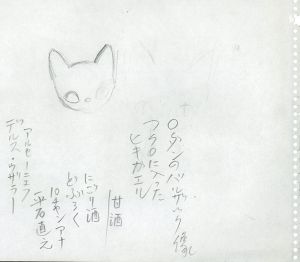 ロダンのバルザック像
フロに入った
ヒキガエル
甘酒
にごり酒
どぶろく
10チャンアナ
平石直元
アルセーニエフ
デルス・ウザーラー